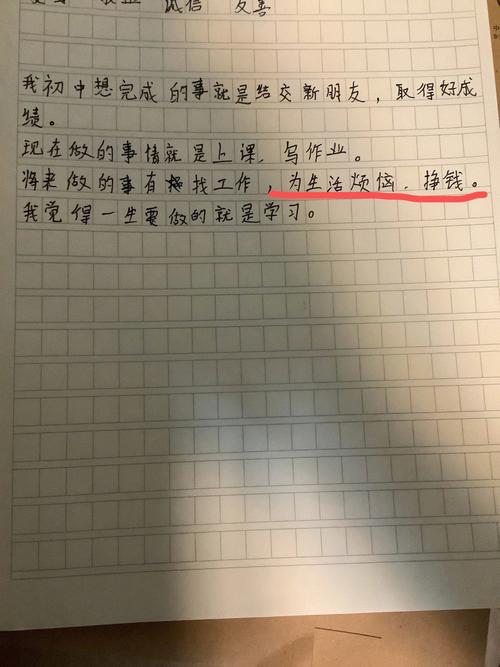 诚信 友善
我初中想完成的事就是结交新朋友，取得好成
绩。
现在做的事情就是上课、写作业。
将来做的事有找工作，为生活烦恼、挣钱。
我觉得一生要做的就是学习。